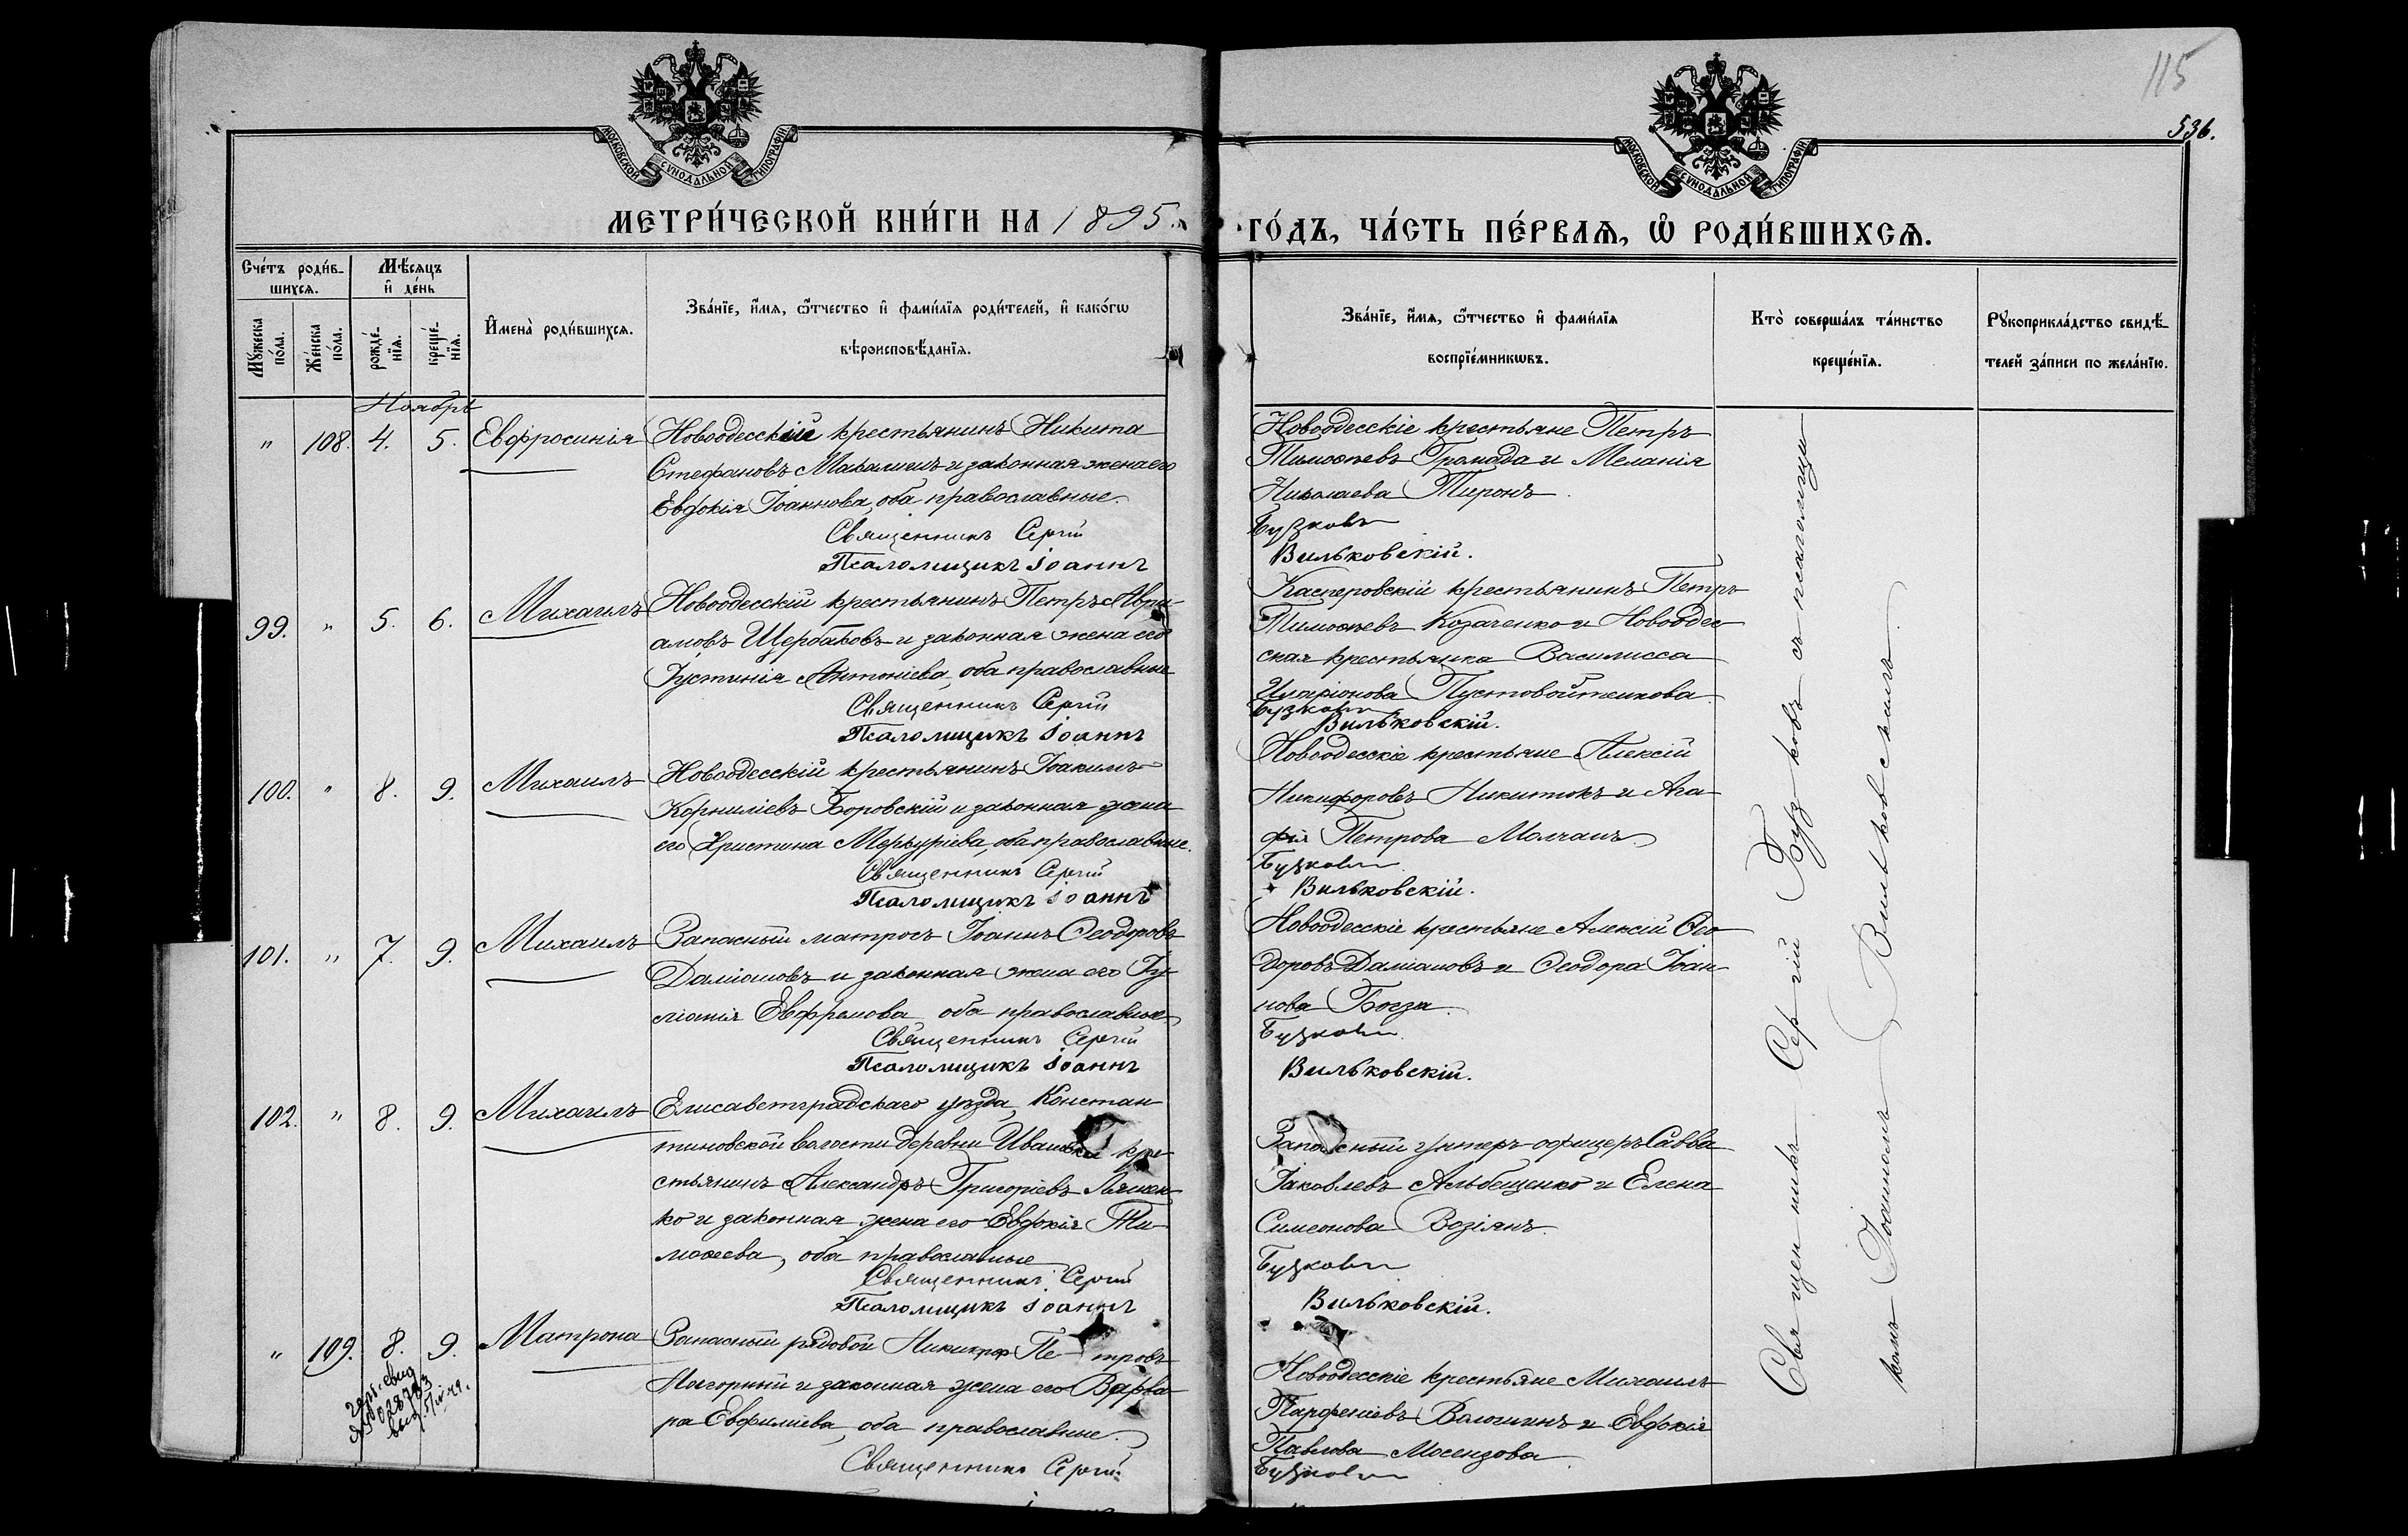 115
536.
МОСКОВСКОЙ СѴНОДАЛЬНОЙ ТИПОГРАФІИ
МОСКОВСКОЙ СѴНОДАЛЬНОЙ ТИПОГРАФІИ
МЕТРИ́ЧЕСКОЙ КНИ́ГИ НА 1895.
ГО́ДЪ, ЧА́СТЬ ПЕ́РВАЯ, Ѡ҆ РОДИ́ВШИХСЯ.
Сче́тъ роди́в-
шихся.
Мѣ́сяцъ
и҆ де́нь
Мꙋ́жеска по́ла.
Же́нска по́ла.
рожде́-
нїя.
креще́-
нїя.
И҆мена̀ роди́вшихся.
Зва́нїе, и҆́мя, ѻ҆́тчество и҆ фами́лїя роди́телей, и҆ како́гѡ
вѣроисповѣ́данїя.
Зва́нїе, и҆́мя, ѻ҆́тчество и҆ фами́лїя
воспрїе́мникѡвъ.
Кто̀ соверша́лъ та́инство
креще́нїя.
Рꙋкоприкла́дство свидѣ́-
телей за́писи по жела́нїю.
Ноябрь
" 108. 4. 5. Евфросинія
Новоодесскій крестьянинъ Никита
Стефановъ и законная жена его
Евдокія Іоаннова, оба православные.
Священникъ Сергій
Псаломщикъ Іоаннъ
Новоодесскіе крестьяне Петръ
Тимоѳеевъ Громада и Меланія
Николаева Тиронъ.
Бузковъ
Вильковскій.
99. " 5. 6. Михаилъ
Новоодесскій крестьянинъ Петръ Авра-
амовъ Щербаковъ и законная жена его
Іустинія Антоніева, оба православные
Священникъ Сергій
Псаломщикъ Іоаннъ
Касперовскій крестьянинъ Петръ
Тимоѳеевъ Козаченко и Новоодес-
ская крестьянка Василисса
Иларіонова Пустовойтенкова.
Бузковъ
Вильковскій.
100. " 8. 9. Михаилъ
Новоодесскій крестьянинъ Іоакимъ
Корниліевъ Боровскій и законная жена
его Христина Меркуріева, оба православные.
Священникъ Сергій
Псаломщикъ Іоаннъ
Новоодесскіе крестьяне Алексій
Никифоровъ Никитюкъ и Ага-
фія Петрова Молчанъ.
Бузковъ
Вильковскій.
101. " 7. 9. Михаилъ
Запасный матросъ Іоаннъ Ѳеодоровъ
Даміановъ и законная жена его Іу-
ліанія Евфремова, оба православные,
Священникъ Сергій
Псаломщикъ Іоаннъ
Новоодесскіе крестьяне Алексій Ѳео-
доровъ Даміановъ и Ѳеодора Іоан-
нова Богза.
Бузковъ.
Вильковскій.
102. " 8. 9. Михаилъ
Елисаветградскаго уѣзда, Констан-
тиновской волости деревни Ивановки кре-
стьянинъ Александръ Григоріевъ Ляшен-
ко и законная жена его Евдокія Ти-
моѳеева, оба православные
Священникъ Сергій
Псаломщикъ Іоаннъ
Запасный унтеръ-офицеръ Савва
Іаковлевъ Альбещенко и Елена
Симеонова Возіянъ.
Бузковъ
Вильковскій.
" 109. 8. 9. Матрона
Запасный рядовой Никифоръ Пе-тровъ
и законная жена его Варва-
ра Евфиміева, оба православные.
Священникъ Сергій
Новоодесскіе крестьяне Михаилъ
Парфеніевъ Волошинъ и Евдокія
Павлова Мосендзова.
Бузковъ
Священникъ Сергій Бузковъ съ псаломщи-
комъ Іоанномъ Вильковскимъ.